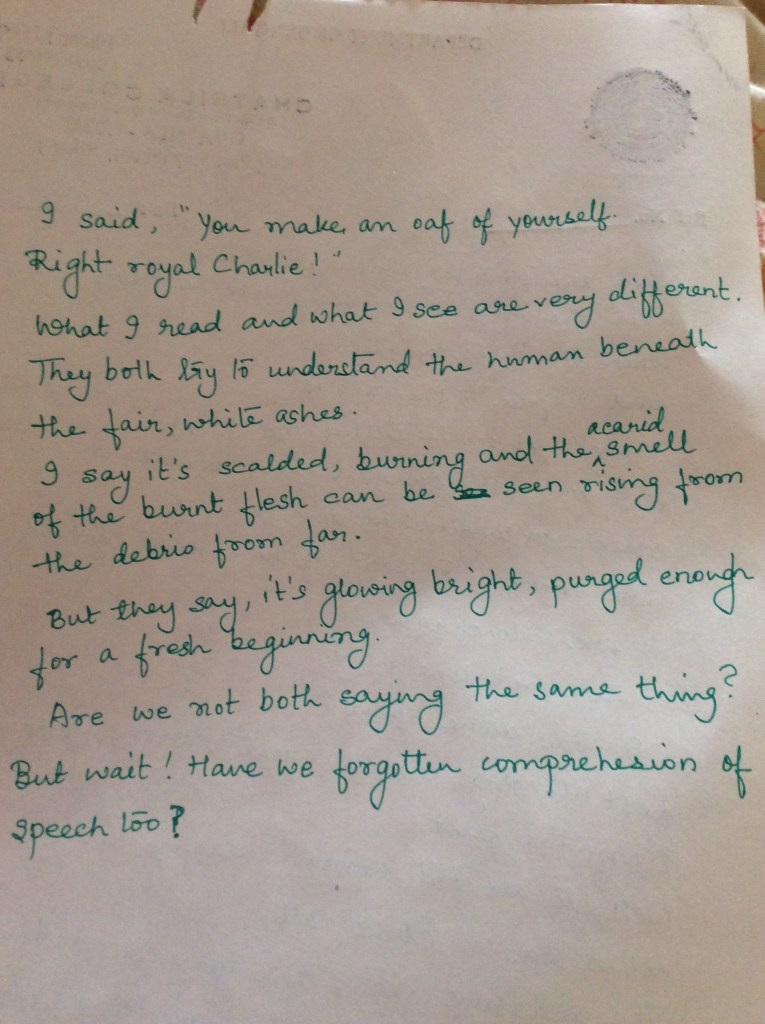 I said, "You make an oaf of yourself.
Right royal Charlie!"
What I read and what I see are very different.
They both try to understand the human beneath
the fair, white ashes.
acarid
I say it's scalded, burning and the smell
of the burnt flesh can be seen rising from
the debris from far.
But they say, it's glowing bright, purged enough
for a fresh beginning.
Are we not both saying the same thing?
But wait! Have we forgotten comprehesion of
speech too?